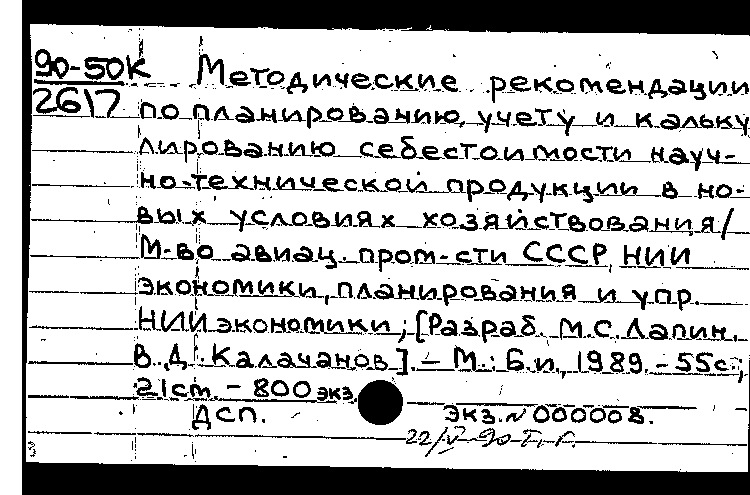 90-50К Методические рекомендации
2617 по планированию, учету и кальку
лированию себестоимости науч-
но-технической продукции в но-
вых условиях хозяйствования/
М-во авиац. пром-сти СССР, НИИ
экономики, планирования и упр.
НИИ экономики; [Разраб. М.С. Лапин.
В. Д. Калачанов]. – М.: Б.и., 1989. – 55с.;
21 cm. – 800 экз.
ДСП. экз. № 000008.
22/V-90